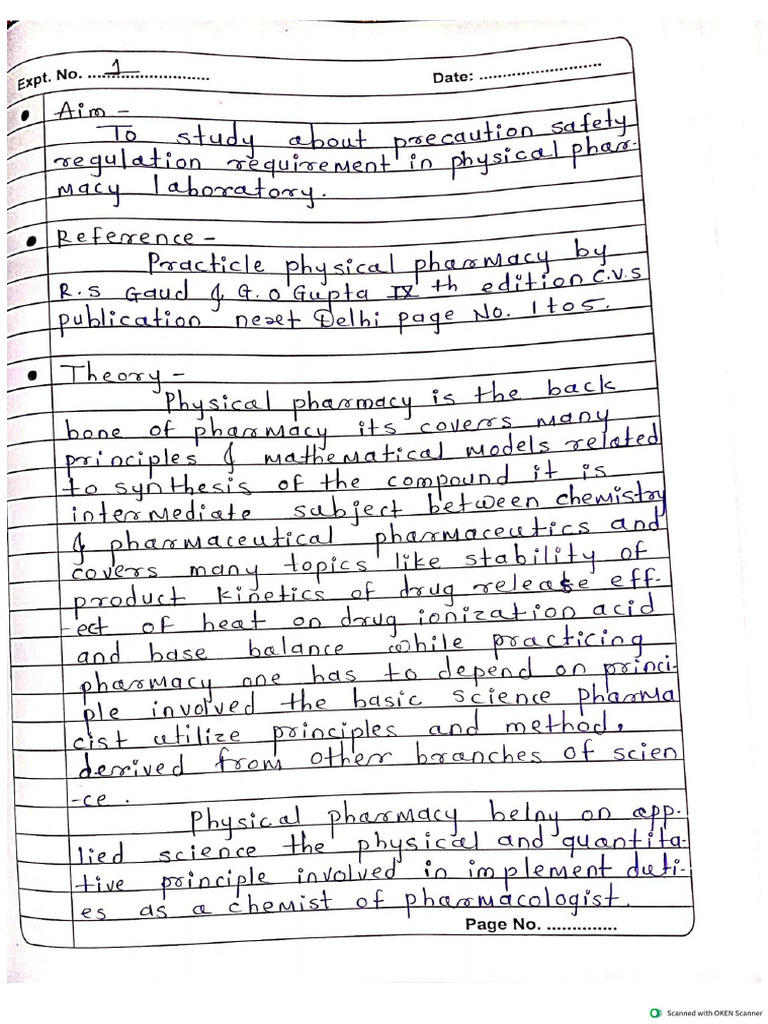 Expt. No. ......1......................
Date: ..............................
• Aim -
To study about precaution safety
regulation requirement in physical phar-
macy laboratory.
• Reference -
Practicle physical pharmacy by
R.s Gaud & G.o Gupta IX th edition C.v.s
publication Delhi page No. 1 to 5.
• Theory -
Physical pharmacy is the back
bone of pharmacy its covers many
principles & mathematical models related
to synthesis of the compound it is
intermediate subject between chemistry
& pharmaceutical pharmaceutics and
covers many topics like stability of
product kinetics of drug release eff-
-ect of heat on drug ionization acid
and base balance while practicing
pharmacy one has to depend on princi-
ple involved the basic science pharma
cist utilize principles and method,
derived from other branches of scien
-ce.
Physical pharmacy on app-
lied science the physical and quantita-
tive principle involved in implement duti-
es as a chemist of pharmacologist.
Page No. ..............
Scanned with OKEN Scanner